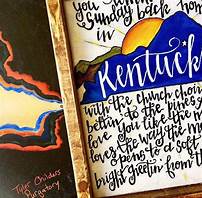 Sunday back home
in
Kentuck
with the church choir
beltin to the pines
love You like the
loves the way the m
pens to a soft
bright greetin' from the
Tyler Childers
Purgatory